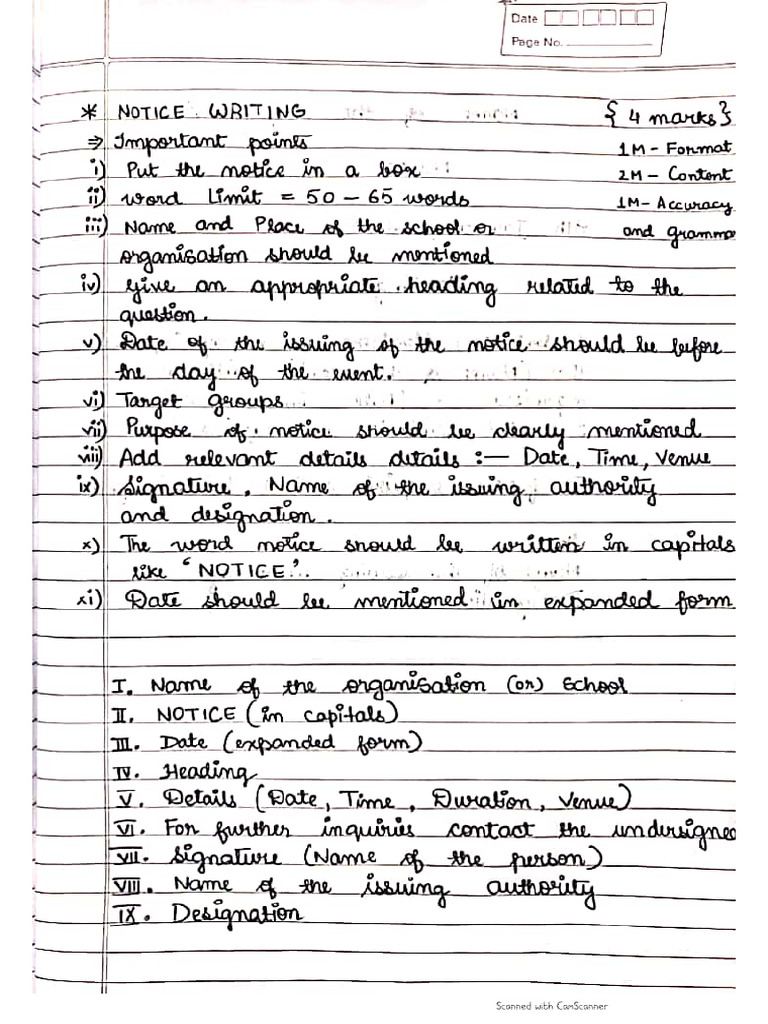 Date
Page No.
* NOTICE WRITING {4 marks}
⇒ Important points 1M - Format
i) Put the notice in a box 2M - Content
ii) Word Limit = 50 - 65 words 1M - Accuracy
iii) Name and Place of the school or and gramma
organisation should be mentioned
iv) Give an appropriate heading related to the
question.
v) Date of the issuing of the notice should be before
the day of the event.
vi) Target groups
vii) Purpose of notice should be clearly mentioned
viii) Add relevant details details :- Date, Time, Venue
ix) Signature, Name of the issuing authority
and designation.
x) The word notice should be written in capitals
like 'NOTICE'.
xi) Date should be mentioned in expanded form
I. Name of the organisation (or) School
II. NOTICE (in capitals)
III. Date (expanded form)
IV. Heading
V. Details (Date, Time, Duration, Venue)
VI. For further inquiries contact the undersigned
VII. Signature (Name of the person)
VIII. Name of the issuing authority
IX. Designation
Scanned with CamScanner